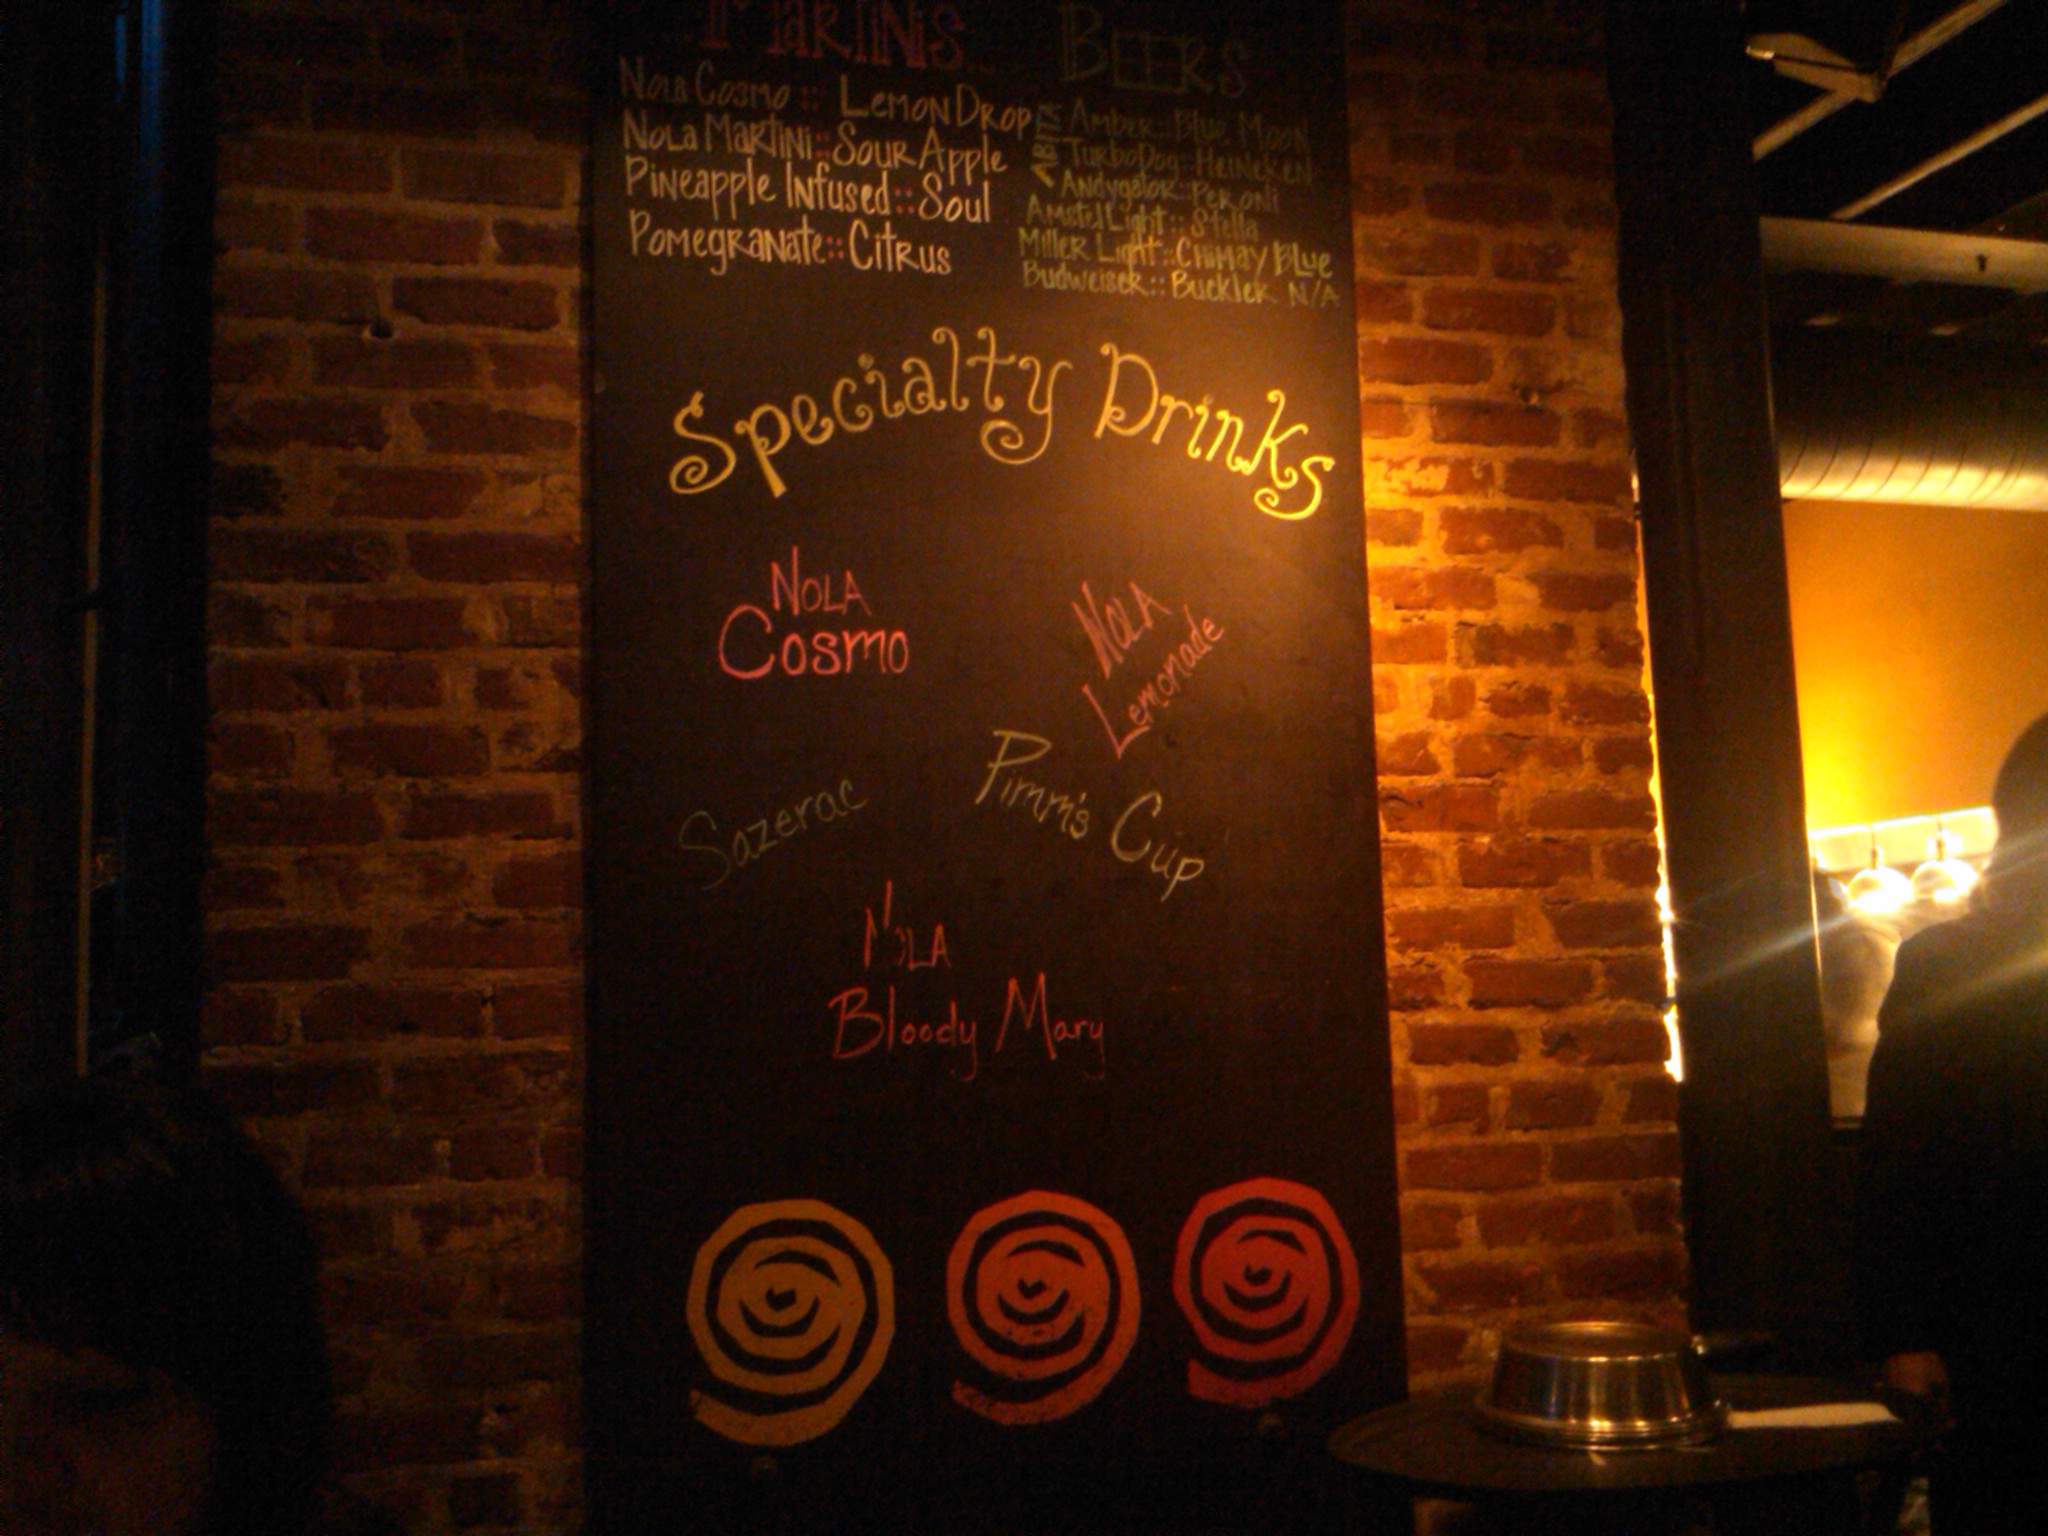 MARTINIS
Nola Cosmo :: Lemon Drop
Nola Martini :: Sour Apple
Pineapple Infused :: Soul
Pomegranate :: Citrus
BEERS
ABITA
Amber :: Blue Moon
TurboDog :: Heineken
Andygator :: Peroni
Amstel Light :: Stella
Miller Light :: Chimay Blue
Budweiser :: Buckler N/A
Specialty Drinks
NOLA
Cosmo
NOLA
Lemonade
Sazerac
Pimm's Cup
NOLA
Bloody Mary